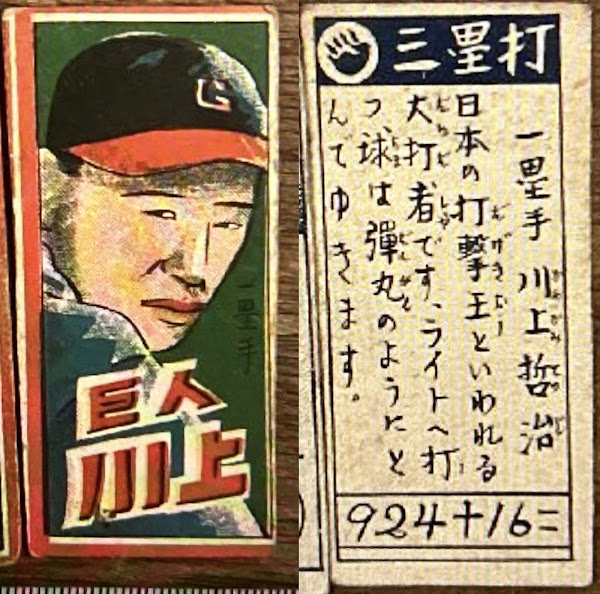 G
一塁手
巨人
川上
三塁打
一塁手 川上哲治
日本の打撃王といわれる
大打者です、ライトへ打
つ球は彈丸のようにと
んでゆきます。
924+16=